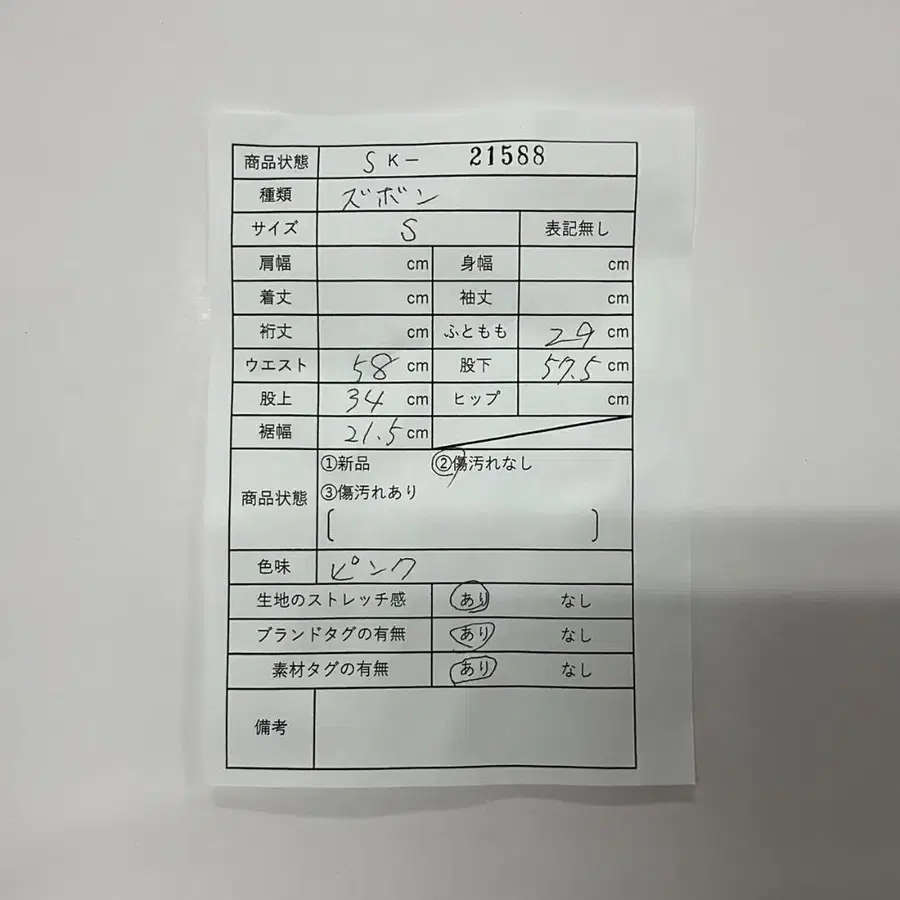 商品状態 SK- 21588
種類 ズボン
サイズ S 表記無し
肩幅 cm 身幅 cm
着丈 cm 袖丈 cm
裄丈 cm ふともも 29 cm
ウエスト 58 cm 股下 57.5 cm
股上 34 cm ヒップ cm
裾幅 21.5 cm
商品状態 ①新品 ②傷汚れなし
③傷汚れあり
[ ]
色味 ピンク
生地のストレッチ感 あり なし
ブランドタグの有無 あり なし
素材タグの有無 あり なし
備考